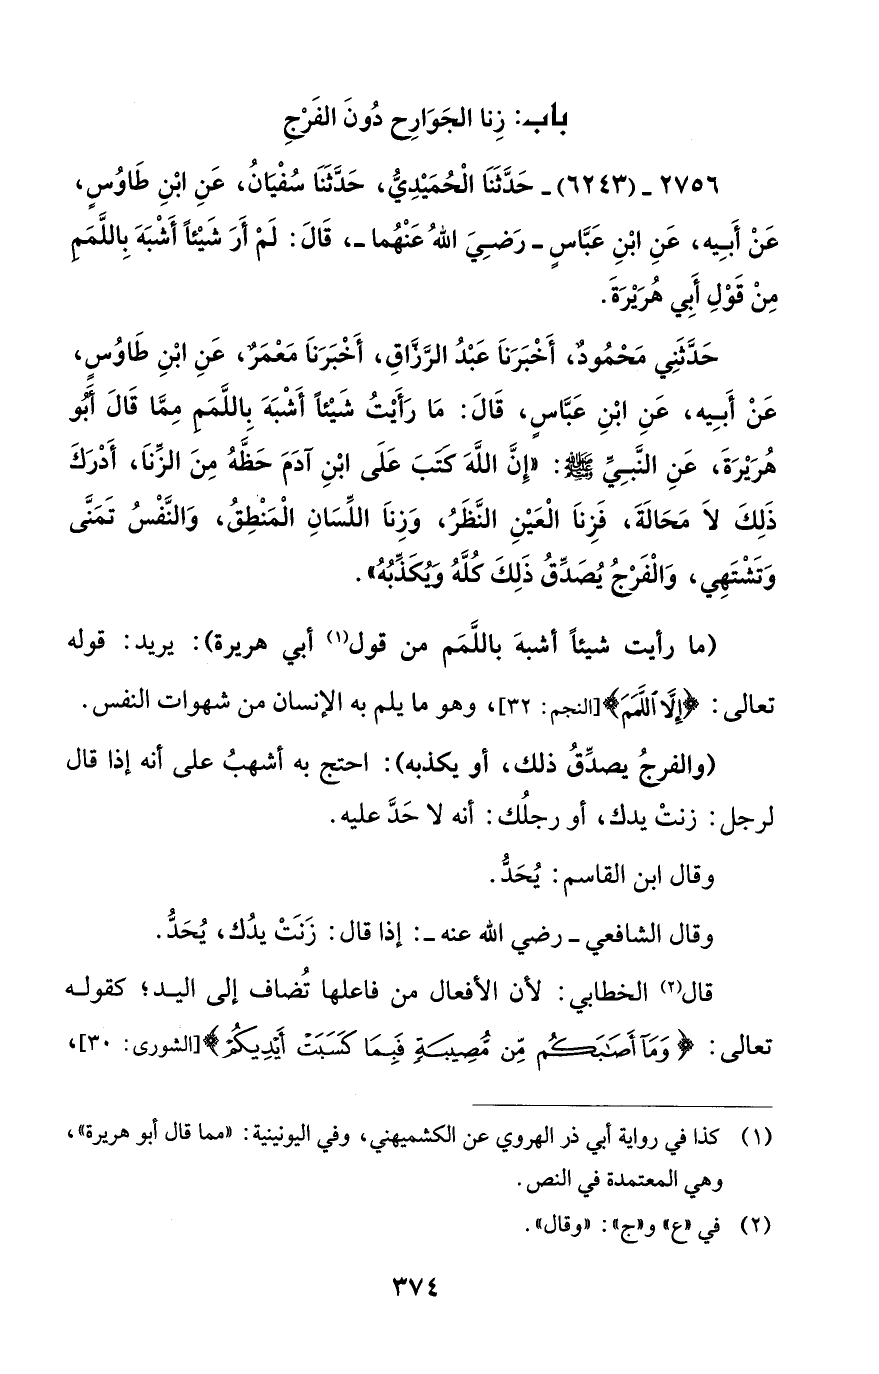 باب: زِنا الجَوَارِحِ دُونَ الفَرْجِ
٢٧٥٦ ـ (٦٢٤٣) ـ حَدَّثَنَا الْحُمَيْدِيُّ، حَدَّثَنَا سُفْيَانُ، عَنِ ابْنِ طَاوُسٍ،
عَنْ أَبِيه، عَنِ ابْنِ عَبَّاسٍ ـ رَضِيَ اللهُ عَنْهُما ـ، قَالَ: لَمْ أَرَ شَيْئاً أَشْبَهَ بِاللَّمَمِ
مِنْ قَوْلِ أَبِي هُرَيْرَةَ.
حَدَّثَنِي مَحْمُودٌ، أَخْبَرَنَا عَبْدُ الرَّزَّاقِ، أَخْبَرَنَا مَعْمَرٌ، عَنِ ابْنِ طَاوُسٍ،
عَنْ أَبِيه، عَنِ ابْنِ عَبَّاسٍ، قَالَ: مَا رَأَيْتُ شَيْئاً أَشْبَهَ بِاللَّمَمِ مِمَّا قَالَ أَبُو
هُرَيْرَةَ، عَنِ النَّبِيِّ ﷺ: «إِنَّ اللَّهَ كَتَبَ عَلَى ابْنِ آدَمَ حَظَّهُ مِنَ الزِّنَا، أَدْرَكَ
ذَلِكَ لاَ مَحَالَةَ، فَزِنَا الْعَيْنِ النَّظَرُ، وَزِنَا اللِّسَانِ الْمَنْطِقُ، وَالنَّفْسُ تَمَنَّى
وَتَشْتَهِي، وَالْفَرْجُ يُصَدِّقُ ذَلِكَ كُلَّهُ وَيُكَذِّبُهُ».
(ما رأيت شيئاً أشبهَ باللَّمَم من قول(١) أبي هريرة): يريد: قوله
تعالى: ﴿إِلَّا ٱللَّمَمَ﴾[النجم: ٣٢]، وهو ما يلم به الإنسان من شهوات النفس.
(والفرجُ يصدِّقُ ذلك، أو يكذبه): احتج به أشهبُ على أنه إذا قال
لرجل: زنتْ يدك، أو رجلُك: أنه لا حَدَّ عليه.
وقال ابن القاسم: يُحَدُّ.
وقال الشافعي ـ رضي الله عنه ـ: إذا قال: زَنَتْ يدُك، يُحَدُّ.
قال(٢) الخطابي: لأن الأفعال من فاعلها تُضاف إلى اليد؛ كقوله
تعالى: ﴿وَمَآ أَصَٰبَكُم مِّن مُّصِيبَةٍ فَبِمَا كَسَبَتْ أَيْدِيكُمْ﴾[الشورى: ٣٠]،
(١) كذا في رواية أبي ذر الهروي عن الكشميهني، وفي اليونينية: «مما قال أبو هريرة»،
وهي المعتمدة في النص.
(٢) في «ع» و«ج»: «وقال».
٣٧٤